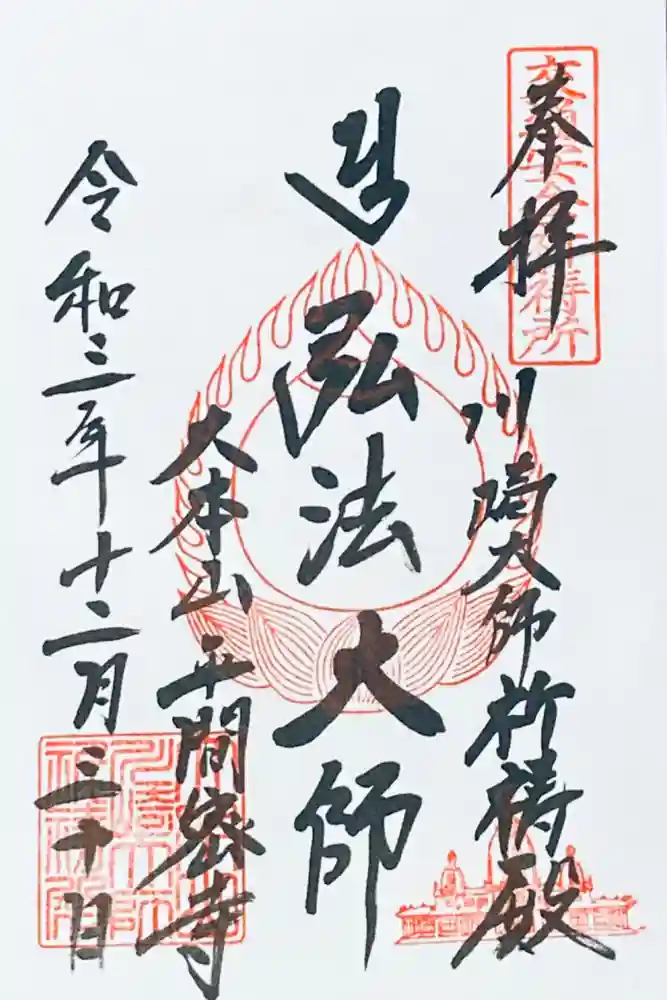 奉拝
交通安全祈祷所
川崎大師祈祷殿
弘法大師
大本山平間密寺
令和三年十二月三十日